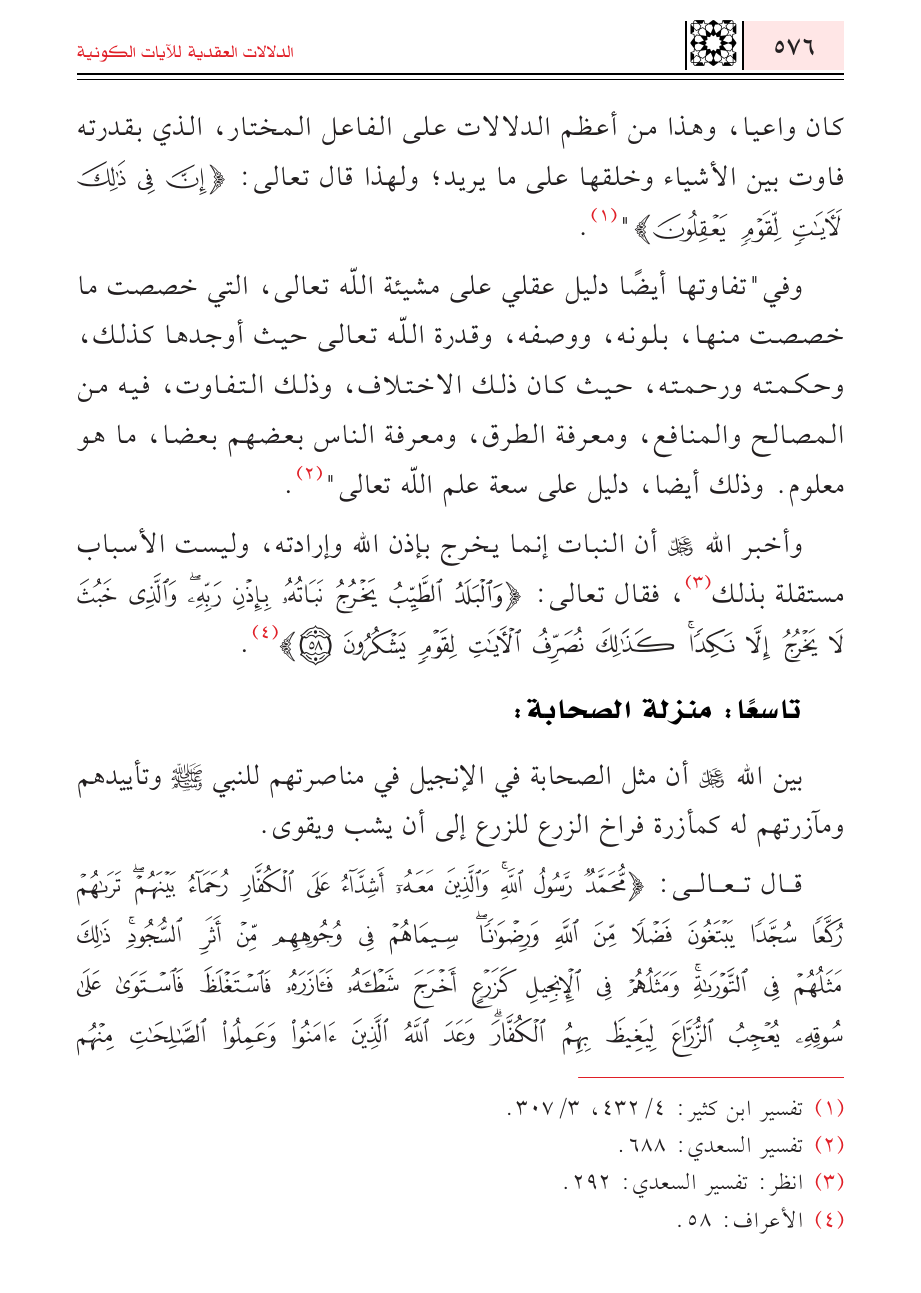 ٥٧٦
الدلالات العقدية للآيات الكونية
كان واعيا، وهذا من أعظم الدلالات على الفاعل المختار، الذي بقدرته
فاوت بين الأشياء وخلقها على ما يريد؛ ولهذا قال تعالى: ﴿إِنَّ فِي ذَٰلِكَ
لَآيَاتٍ لِّقَوْمٍ يَعْقِلُونَ﴾"(١).
وفي "تفاوتها أيضًا دليل عقلي على مشيئة اللّه تعالى، التي خصصت ما
خصصت منها، بلونه، ووصفه، وقدرة اللّه تعالى حيث أوجدها كذلك،
وحكمته ورحمته، حيث كان ذلك الاختلاف، وذلك التفاوت، فيه من
المصالح والمنافع، ومعرفة الطرق، ومعرفة الناس بعضهم بعضا، ما هو
معلوم. وذلك أيضا، دليل على سعة علم اللّه تعالى"(٢).
وأخبر الله ﷻ أن النبات إنما يخرج بإذن الله وإرادته، وليست الأسباب
مستقلة بذلك(٣)، فقال تعالى: ﴿وَٱلْبَلَدُ ٱلطَّيِّبُ يَخْرُجُ نَبَاتُهُۥ بِإِذْنِ رَبِّهِۦۖ وَٱلَّذِى خَبُثَ
لَا يَخْرُجُ إِلَّا نَكِدًاۚ كَذَٰلِكَ نُصَرِّفُ ٱلْـَٔايَٰتِ لِقَوْمٍ يَشْكُرُونَ ۝٥٨﴾(٤).
تاسعًا: منزلة الصحابة:
بين الله ﷻ أن مثل الصحابة في الإنجيل في مناصرتهم للنبي ﷺ وتأييدهم
ومآزرتهم له كمأزرة فراخ الزرع للزرع إلى أن يشب ويقوى.
قال تعالى: ﴿مُّحَمَّدٌ رَّسُولُ ٱللَّهِۚ وَٱلَّذِينَ مَعَهُۥٓ أَشِدَّآءُ عَلَى ٱلْكُفَّارِ رُحَمَآءُ بَيْنَهُمْۖ تَرَىٰهُمْ
رُكَّعًا سُجَّدًا يَبْتَغُونَ فَضْلًا مِّنَ ٱللَّهِ وَرِضْوَٰنًاۖ سِيمَاهُمْ فِى وُجُوهِهِم مِّنْ أَثَرِ ٱلسُّجُودِۚ ذَٰلِكَ
مَثَلُهُمْ فِى ٱلتَّوْرَىٰةِۚ وَمَثَلُهُمْ فِى ٱلْإِنجِيلِ كَزَرْعٍ أَخْرَجَ شَطْـَٔهُۥ فَـَٔازَرَهُۥ فَٱسْتَغْلَظَ فَٱسْتَوَىٰ عَلَىٰ
سُوقِهِۦ يُعْجِبُ ٱلزُّرَّاعَ لِيَغِيظَ بِهِمُ ٱلْكُفَّارَۗ وَعَدَ ٱللَّهُ ٱلَّذِينَ ءَامَنُوا۟ وَعَمِلُوا۟ ٱلصَّٰلِحَٰتِ مِنْهُم
(١) تفسير ابن كثير: ٤/ ٤٣٢، ٣/ ٣٠٧.
(٢) تفسير السعدي: ٦٨٨.
(٣) انظر: تفسير السعدي: ٢٩٢.
(٤) الأعراف: ٥٨.